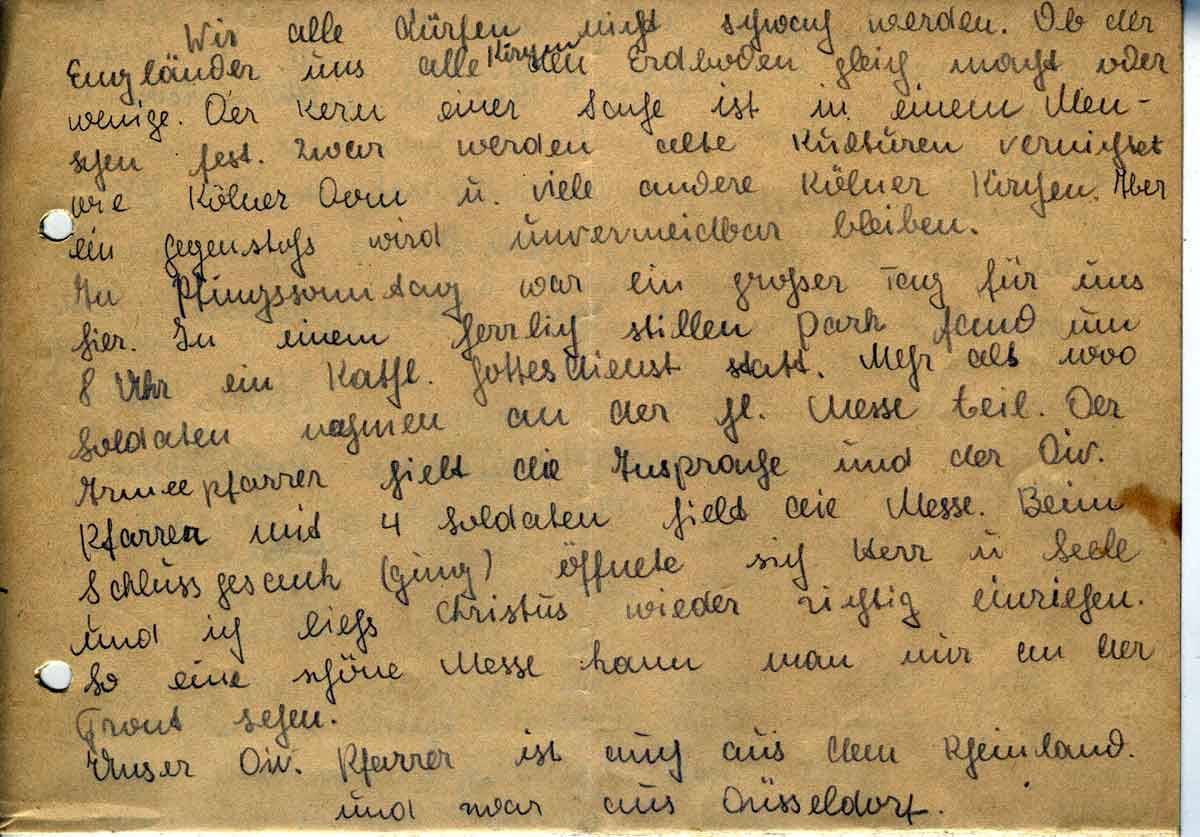 Wir alle dürfen nicht schwach werden. Ob der
Engländer uns alle Kirchen den Erdboden gleich macht oder
wenige. Der Kern einer Sache ist in einem Men-
schen fest. Zwar werden alte Kulturen vernichtet
wie Kölner Dom u. viele andere Kölner Kirchen. Aber
ein gegenstoß wird unvermeidbar bleiben.
An Pfingssonntag war ein großer Tag für uns
hier. In einem herrlich stillen Park fand um
8 Uhr ein Kathl. Gottesdienst statt. Mehr als 1000
Soldaten nahmen an der hl. Messe teil. Der
Armeepfarrer hielt die Ansprache und der Div.
Pfarrer mit 4 Soldaten hielt die Messe. Beim
Schlussgesank (gung) öffnete sich Herr u Seele
und ich liess Christus wieder richtig einziehen.
So eine schöne Messe kann man nur an der
Front sehen.
Unser Div. Pfarrer ist auch aus dem Rheinland.
und zwar aus Düsseldorf.